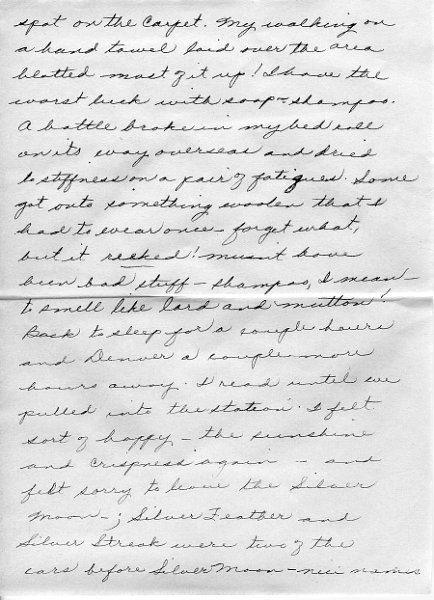 spot on the carpet. My walking on
a hand towel laid over the area
blotted most of it up! I have the
worst luck with soap - shampoo.
A bottle broke in my bed roll
on its way overseas and dried
to stiffness on a pair of fatigues. Some
got onto something woolen that I
had to wear once - forget what,
but it reeked! musn't have
been bad stuff - shampoo, I mean -
to smell like lard and mutton!
Back to sleep for a couple hours
and Denver a couple more
hours away. I read until we
pulled into the station. I felt
sort of happy - the sunshine
and crispness again - and
felt sorry to leave the Silver
Moon - ; Silver Feather and
Silver Streak were two of the
cars before Silver Moon - nice names